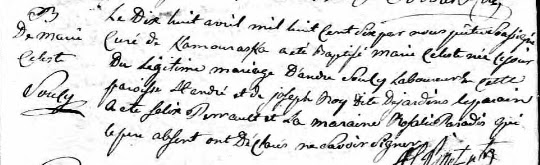 B
De marie
Celeste
Souly
Le Dix huit avril mil huit Cent Six par nous prêtre Soussigné
Curé de Kamouraska a été Baptisé marie Celeste née ce jour
Du Légitime mariage D'andre Souly Laboureur de Cette
paroisse St andré et de joseph Roy dite Dejardins le parain
a été felix Perrault et La maraine Rosalie Paradis qui
le pere absent ont Déclaré ne Savoir Signer